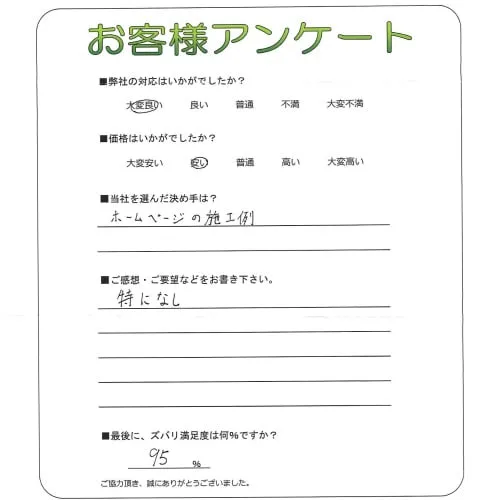 お客様アンケート
■弊社の対応はいかがでしたか？
大変良い 良い 普通 不満 大変不満
■価格はいかがでしたか？
大変安い 安い 普通 高い 大変高い
■当社を選んだ決め手は？
ホームページの施工例
■ご感想・ご要望などをお書き下さい。
特になし
■最後に、ズバリ満足度は何%ですか？
95 %
ご協力頂き、誠にありがとうございました。